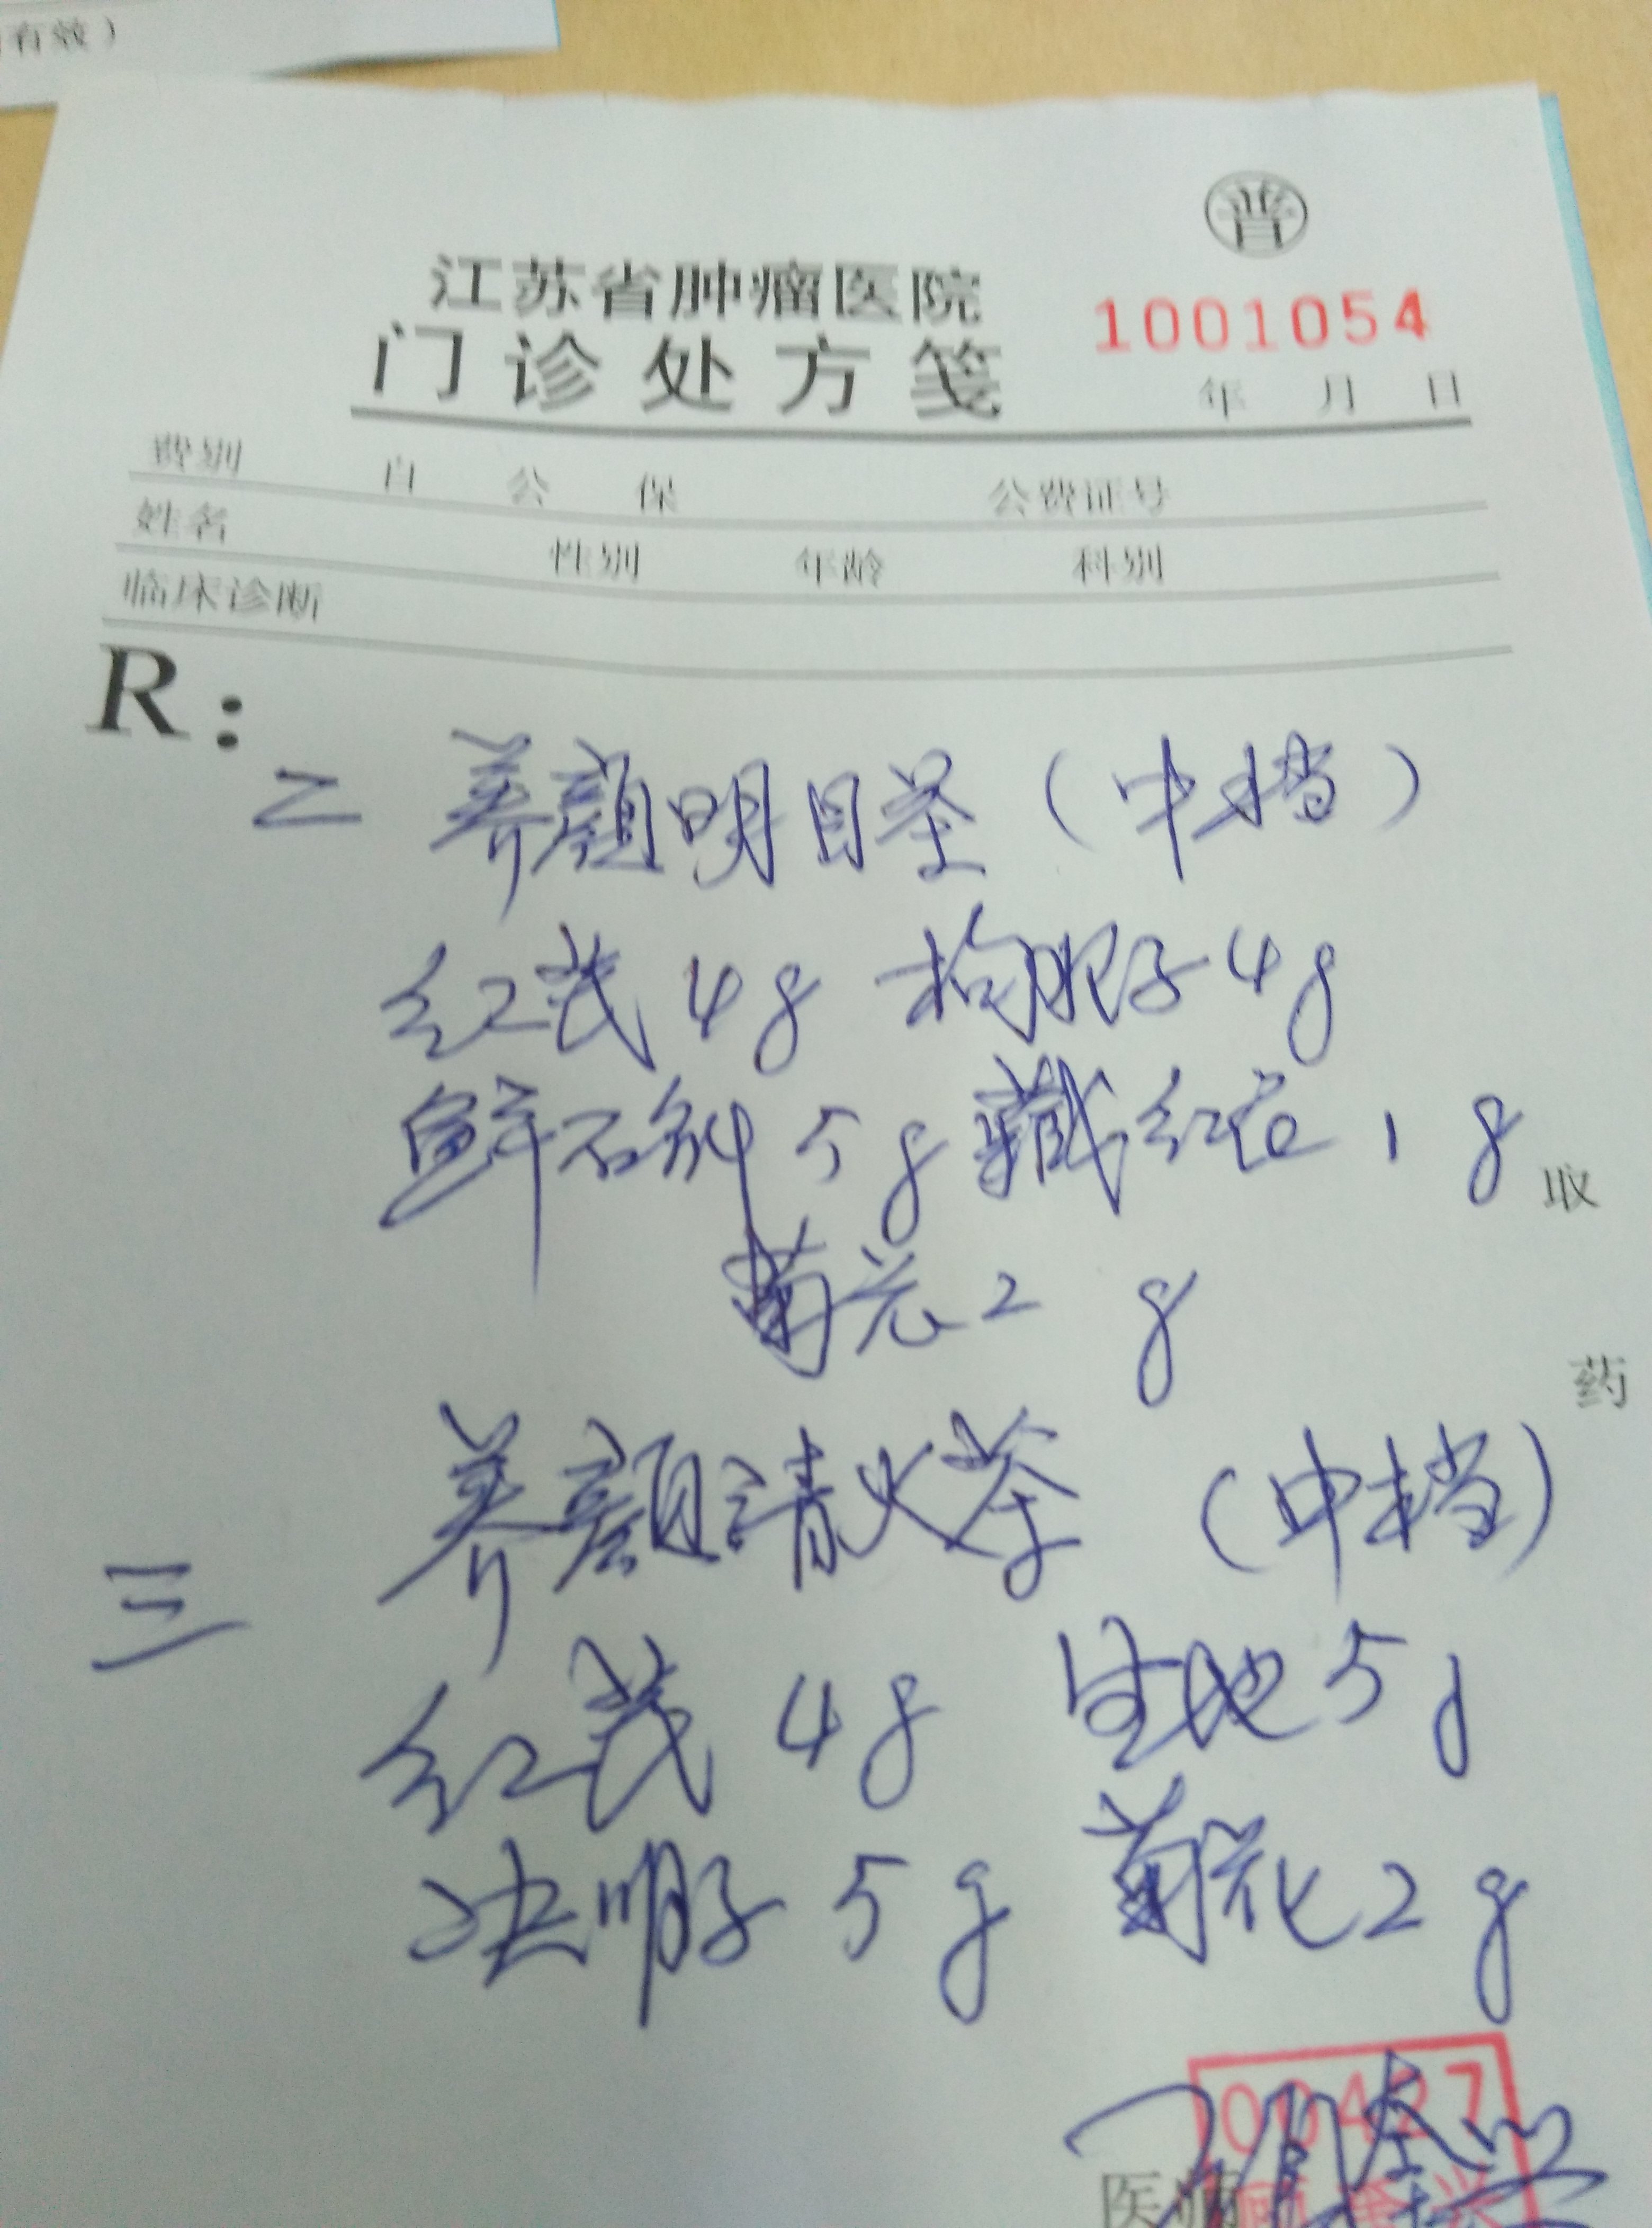 有效）
普
江苏省肿瘤医院
1001054
门诊处方笺
年 月 日
费别 自 公 保 公费证号
姓名 性别 年龄 科别
临床诊断
R：
二 养颜明目茶（中档）
红芪 4g 枸杞子 4g
鲜石斛 5g 藏红花 1g
取
菊花 2g
药
三 养颜清火茶（中档）
红芪 4g 生地 5g
决明子 5g 菊花 2g
00427
医师